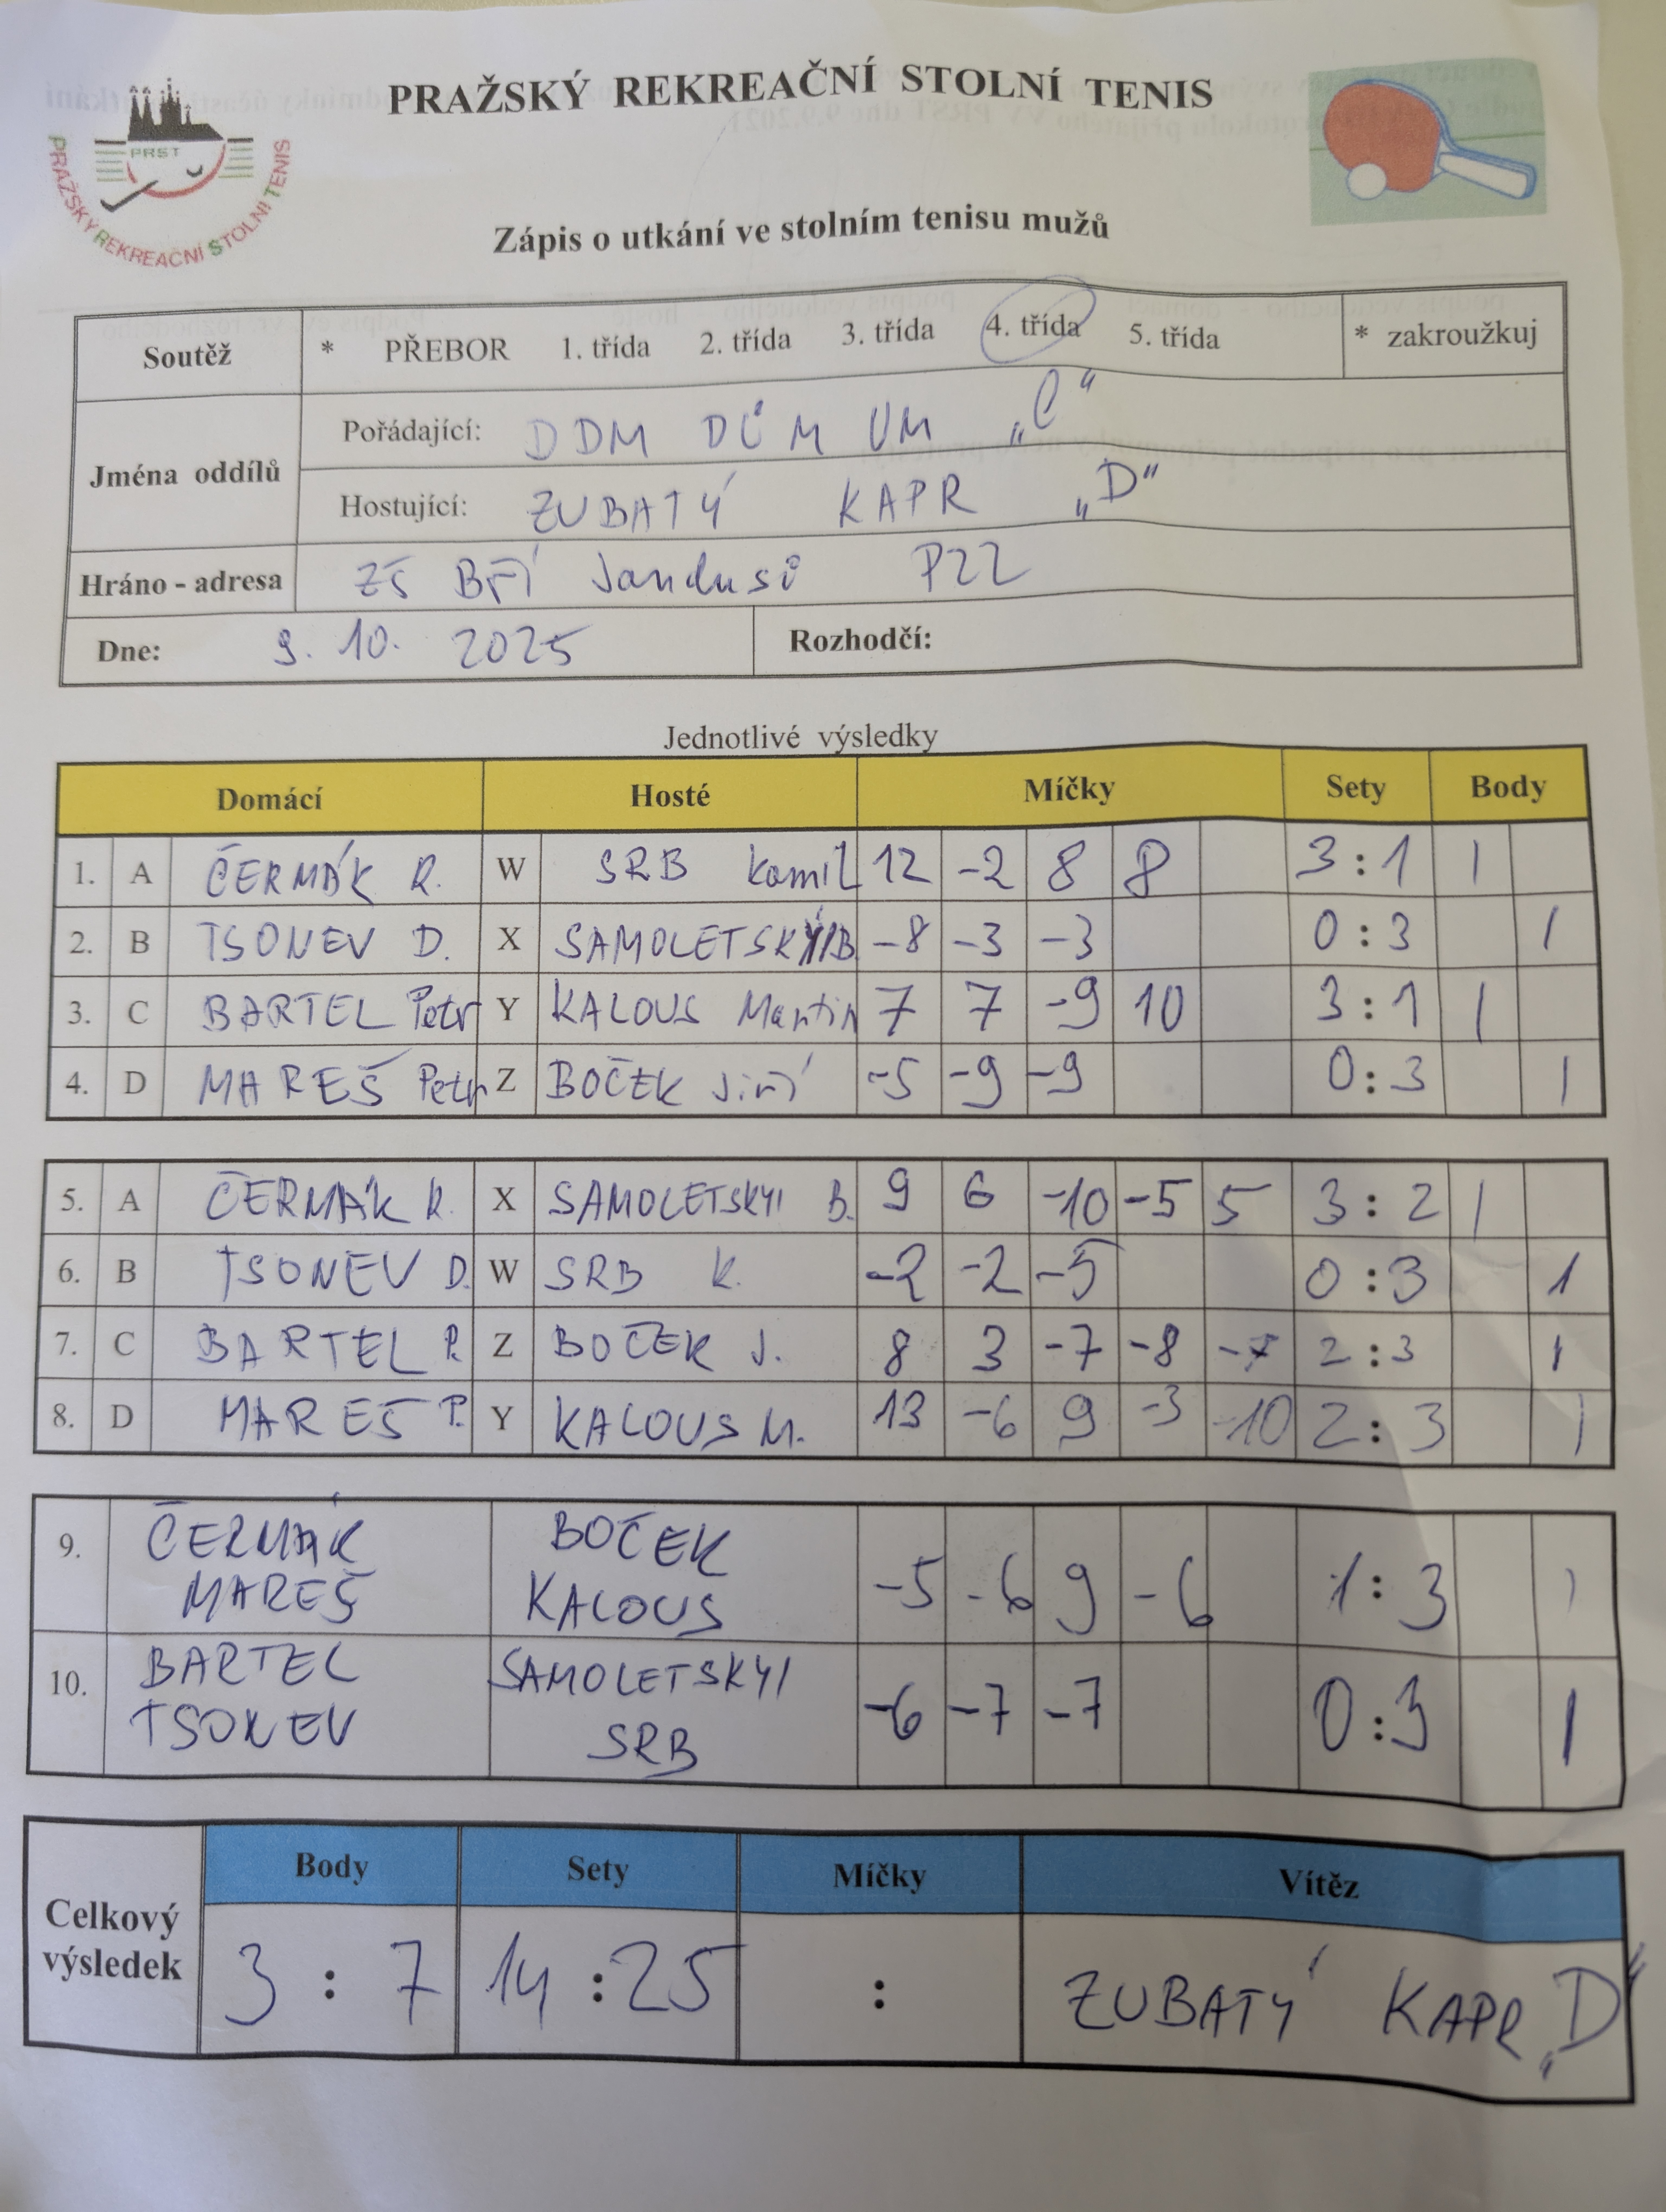 PRAŽSKÝ REKREAČNÍ STOLNÍ TENIS
PRST
PRAŽSKÝ REKREAČNÍ STOLNÍ TENIS
Zápis o utkání ve stolním tenisu mužů
Soutěž * PŘEBOR 1. třída 2. třída 3. třída 4. třída 5. třída * zakroužkuj
Jména oddílů
Pořádající: DDM DŮM UM „C“
Hostující: ZUBATÝ KAPR „D“
Hráno - adresa ZŠ BŘÍ Jandusů P22
Dne: 9. 10. 2025 Rozhodčí:
Jednotlivé výsledky
Domácí Hosté Míčky Sety Body
1. A ČERMÁK R. W SRB Kamil 12 -2 8 8 3 : 1 1
2. B TSONEV D. X SAMOLETSKYI B. -8 -3 -3 0 : 3 1
3. C BARTEL Petr Y KALOUS Martin 7 7 -9 10 3 : 1 1
4. D MAREŠ Petr Z BOČEK Jiří -5 -9 -9 0 : 3 1
5. A ČERMÁK R. X SAMOLETSKYI B. 9 6 -10 -5 5 3 : 2 1
6. B TSONEV D. W SRB K. -2 -2 -5 0 : 3 1
7. C BARTEL P. Z BOČEK J. 8 3 -7 -8 -7 2 : 3 1
8. D MAREŠ P. Y KALOUS M. 13 -6 9 -3 -10 2 : 3 1
9. ČERMÁK BOČEK
MAREŠ KALOUS -5 -6 9 -6 1 : 3 1
10. BARTEL SAMOLETSKYI
TSONEV SRB -6 -7 -7 0 : 3 1
Celkový výsledek
Body Sety Míčky Vítěz
3 : 7 14 : 25 : ZUBATÝ KAPR „D“